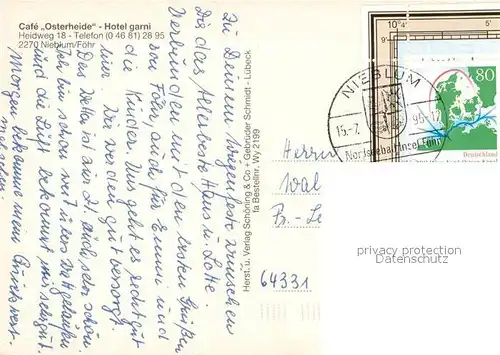 Café „Osterheide“ - Hotel garni
Heidweg 18 - Telefon (0 46 81) 28 95
2270 Nieblum/Föhr
Zu Deinem Wiegenfeste wünschen
Dir das Allerbeste Hans u. Lotte.
Verbunden mit den besten Grüßen
aus Föhr auch für Emmi und
die Kinder. Uns geht es recht gut
hier. Wir werden gut versorgt.
Das Wetter ist zur Zt. auch sehr schön.
und die Luft bekommt uns sehr gut.
Morgen bekomme mein Rückrest.
Herst. u. Verlag Schöning & Co + Gebrüder Schmidt - Lübeck
fa Bestellnr. Wy 2199
10°4'
5'
NIEBLUM
15.-7. 95-17
Nordseebad Insel Föhr
80
Deutschland
Herrn
Wal
Br.-Le
64331
privacy protection
Datenschutz